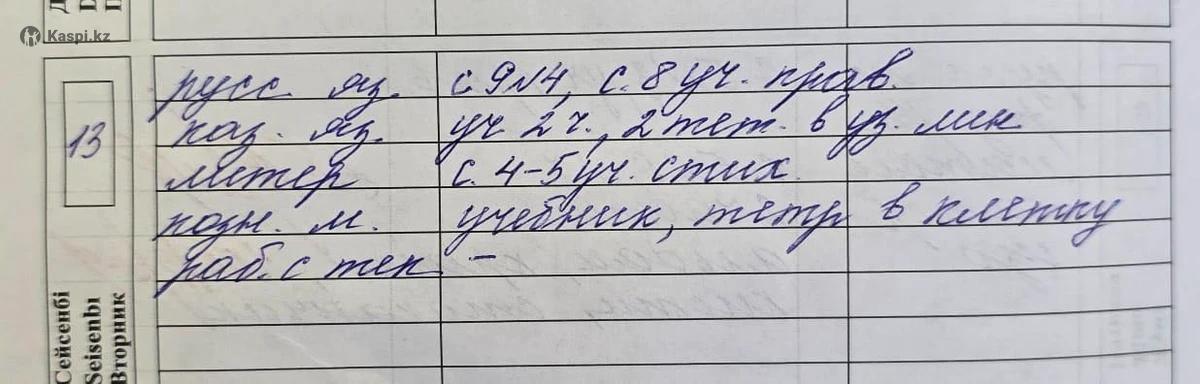 Kaspi.kz
13
русс. яз. с. 9 №4, с. 8 уч. прав.
каз. яз. уч. 2 ч., 2 тет. в уз. лин
литер с. 4-5 уч. стих.
позн. м. учебник, тетр в клетку
раб. с тек –
Сейсенбі
Seisenbı
Вторник